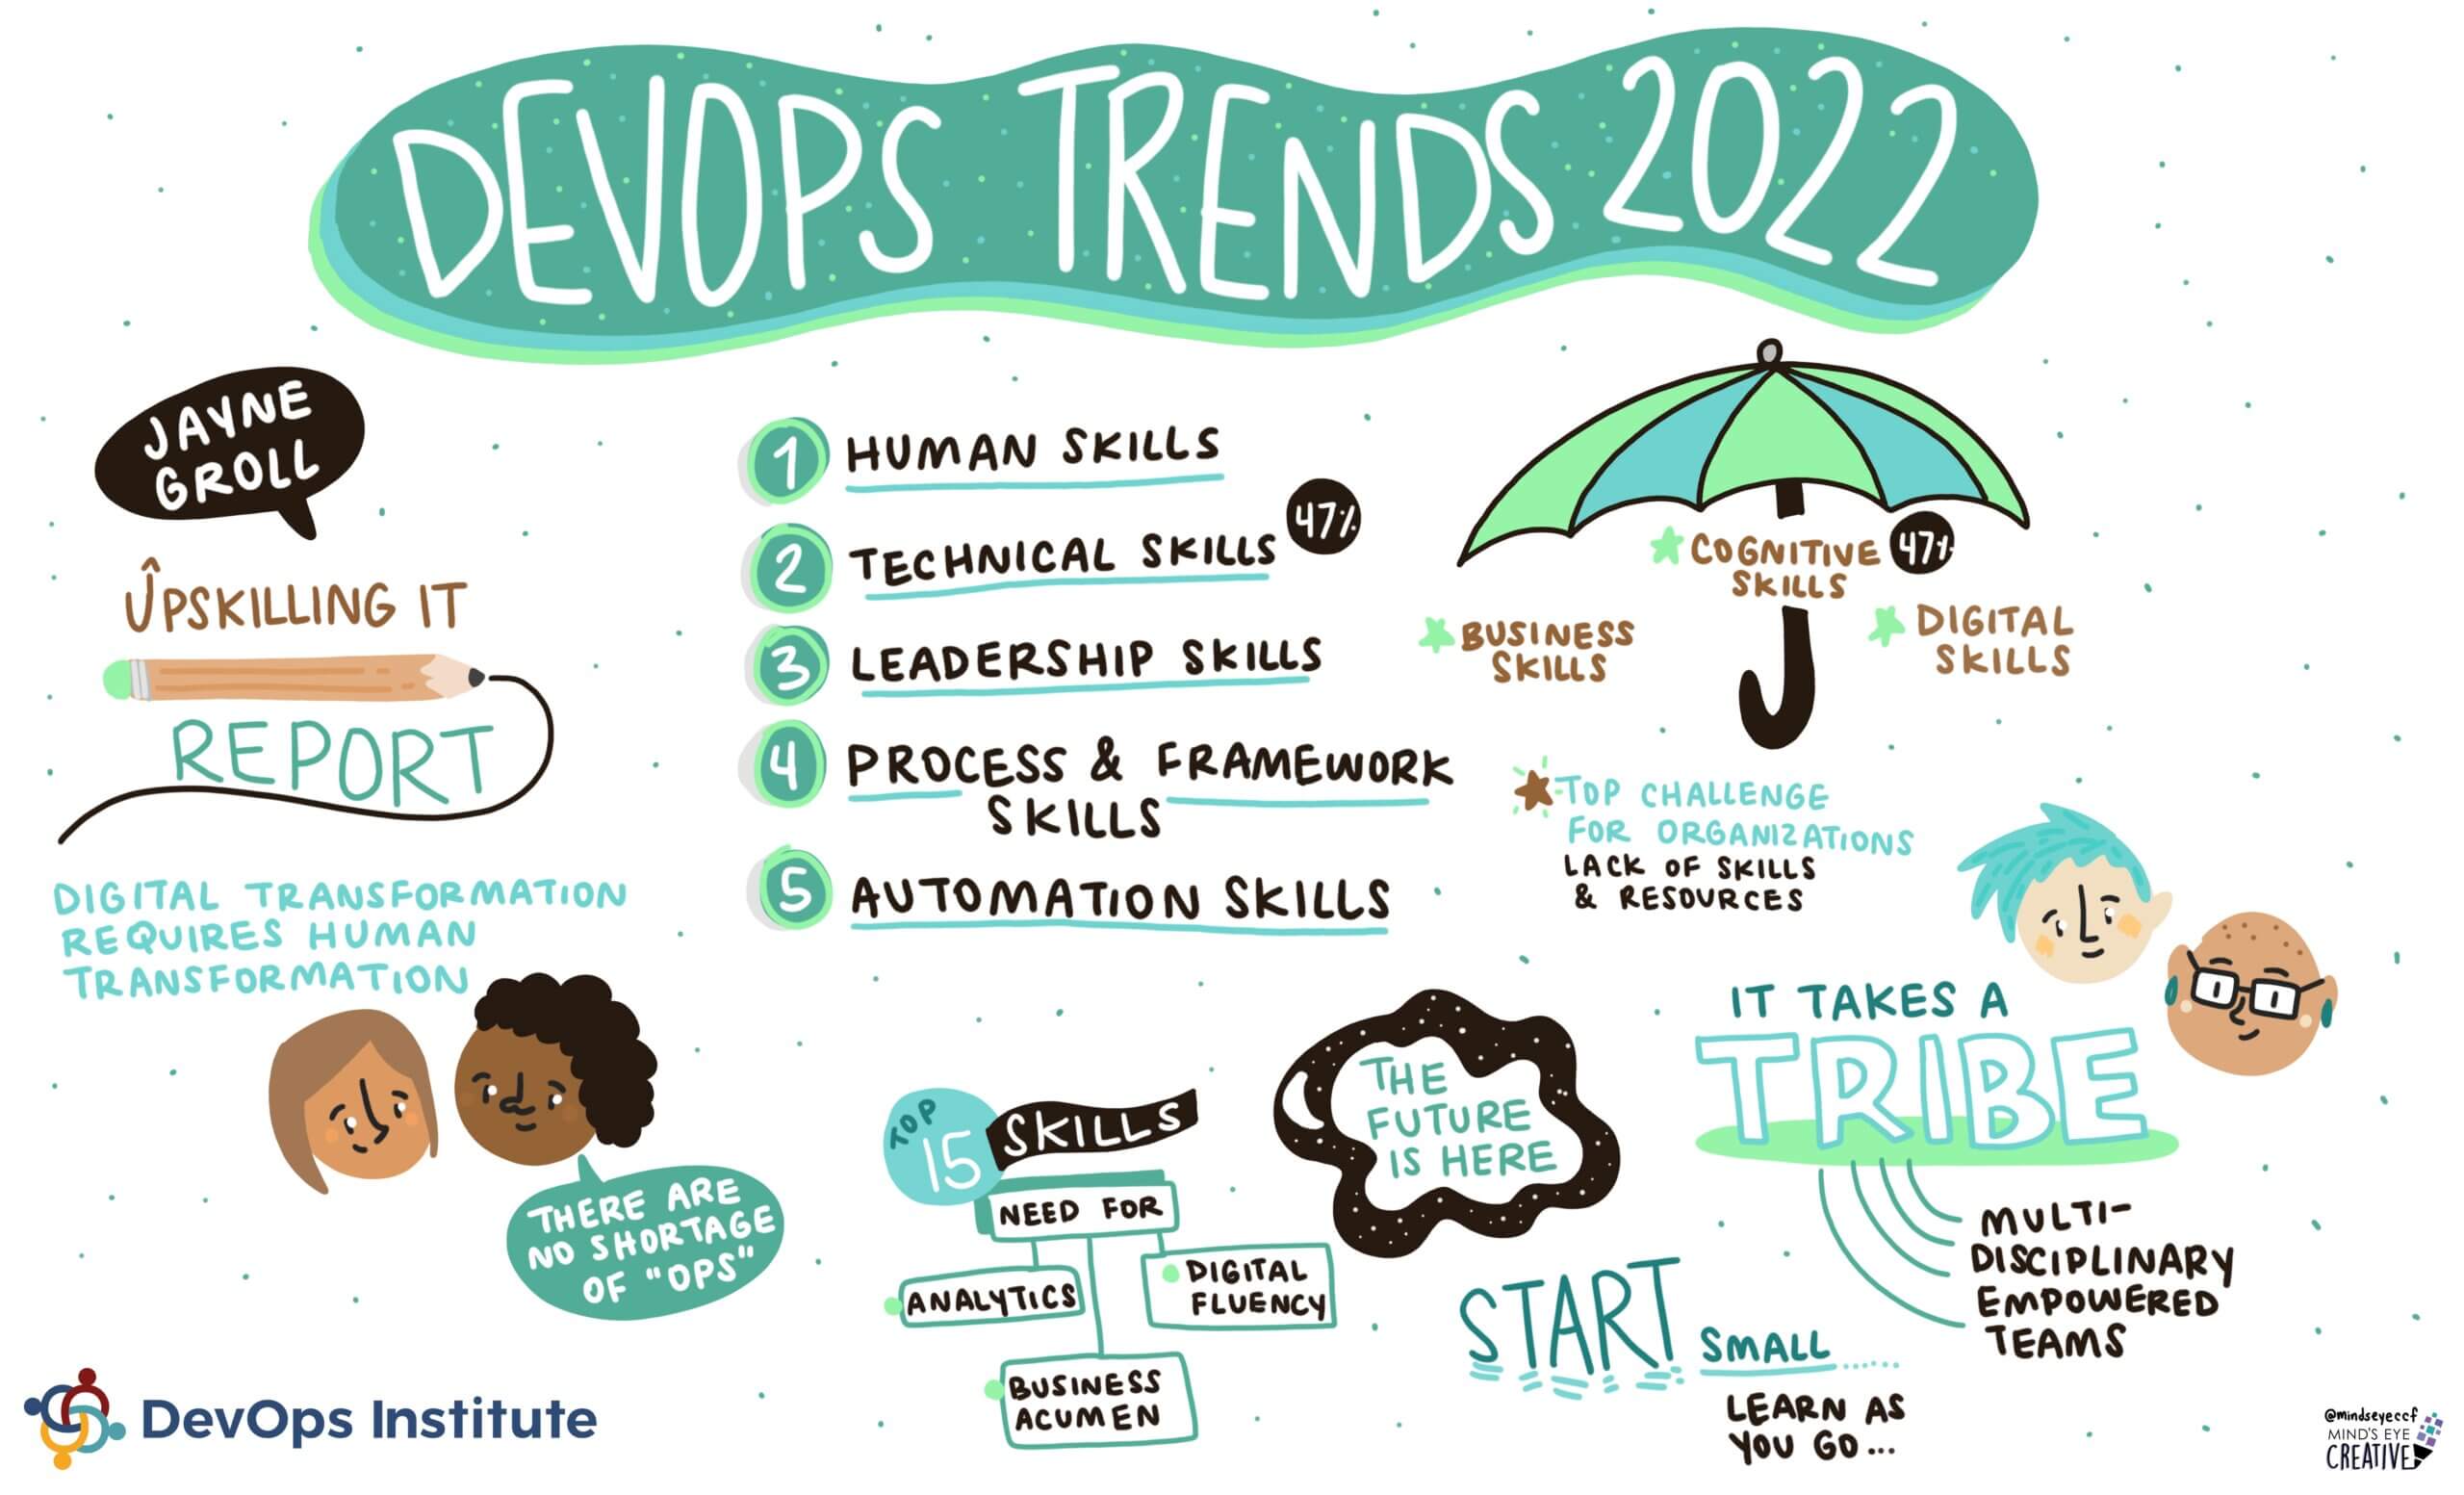 DEVOPS TRENDS 2022
JAYNE
GROLL
UPSKILLING IT
REPORT
DIGITAL TRANSFORMATION
REQUIRES HUMAN
TRANSFORMATION
THERE ARE
NO SHORTAGE
OF "OPS"
DevOps Institute
1 HUMAN SKILLS
2 TECHNICAL SKILLS 47%
3 LEADERSHIP SKILLS
4 PROCESS & FRAMEWORK
SKILLS
5 AUTOMATION SKILLS
COGNITIVE 47%
SKILLS
BUSINESS
SKILLS
DIGITAL
SKILLS
TOP CHALLENGE
FOR ORGANIZATIONS
LACK OF SKILLS
& RESOURCES
TOP
15 SKILLS
NEED FOR
ANALYTICS
DIGITAL
FLUENCY
BUSINESS
ACUMEN
THE
FUTURE
IS HERE
IT TAKES A
TRIBE
MULTI-
DISCIPLINARY
EMPOWERED
TEAMS
START SMALL......
LEARN AS
YOU GO...
@mindseyeccf
MIND'S EYE
CREATIVE